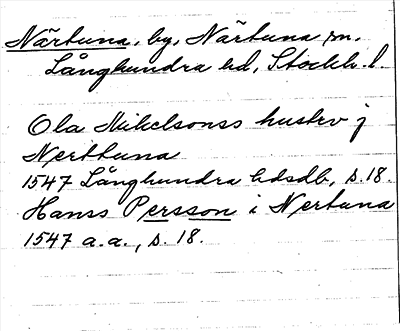 Närtuna, by, Närtuna sn,
Långhundra hd, Stockh. l.
Ola Mikelsonss hustrv j
Nerttuna
1547 Långhundra hdsdb, s. 18.
Hanss Persson i Nertuna
1547 a.a., s. 18.